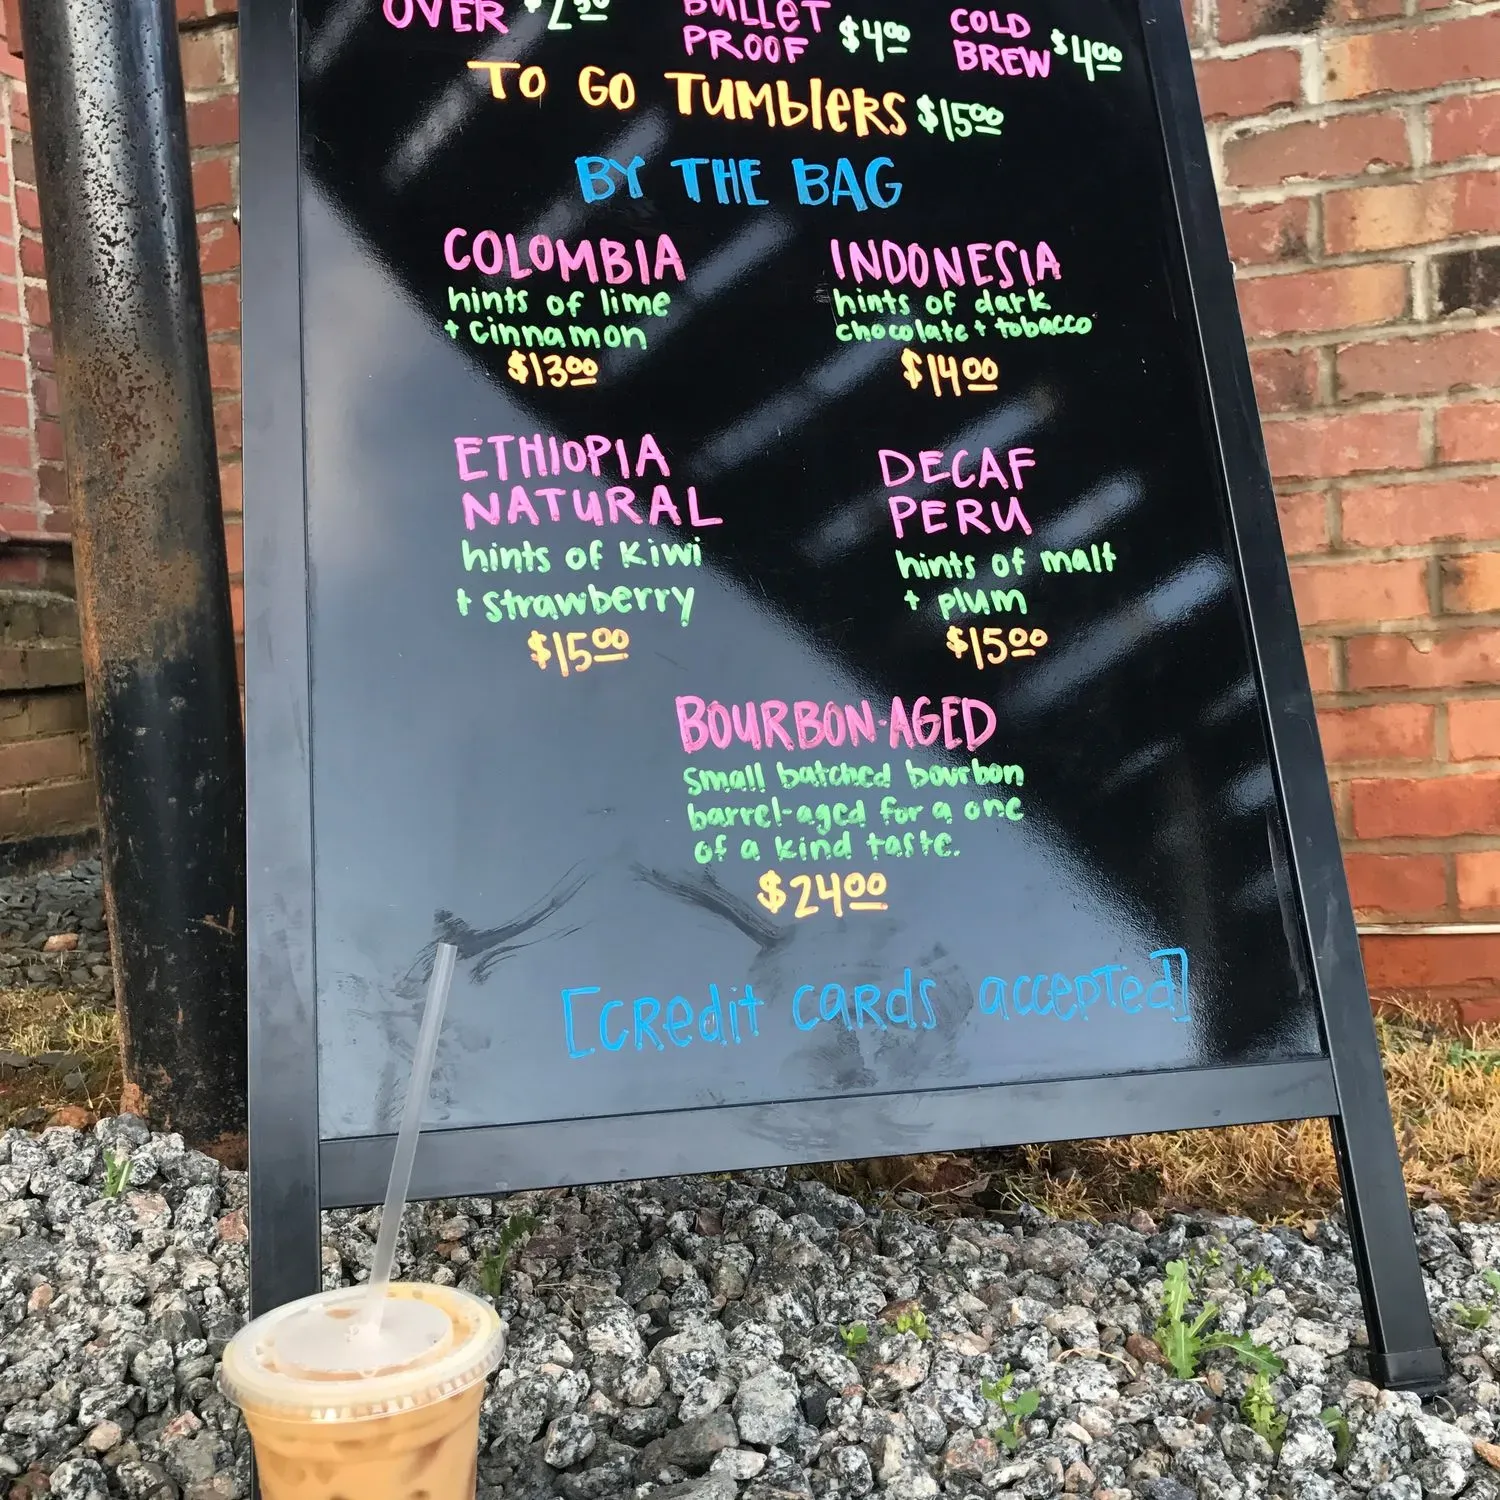 OVER $2.50 BULLET PROOF $4.00 COLD BREW $4.00
TO GO TUMBLERS $15.00
BY THE BAG
COLOMBIA
hints of lime
+ cinnamon
$13.00
INDONESIA
hints of dark
chocolate + tobacco
$14.00
ETHIOPIA
NATURAL
hints of kiwi
+ strawberry
$15.00
DECAF
PERU
hints of malt
+ plum
$15.00
BOURBON-AGED
small batched bourbon
barrel-aged for a one
of a kind taste.
$24.00
[credit cards accepted]